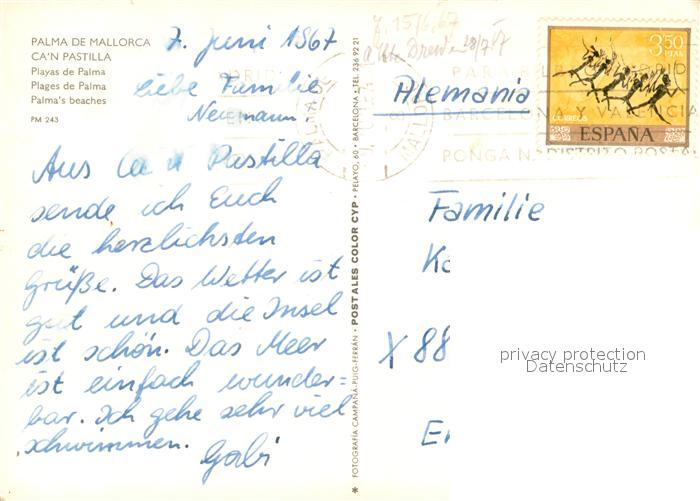 PALMA DE MALLORCA
CA'N PASTILLA
Playas de Palma
Plages de Palma
Palma's beaches
PM 243
7. Juni 1967
liebe Familie
Neumann!
Aus Ca'n Pastilla
sende ich Euch
die herzlichsten
Grüße. Das Wetter ist
gut und die Insel
ist schön. Das Meer
ist einfach wunder=
bar. Ich gehe sehr viel
schwimmen.
Gabi
* FOTOGRAFÍA CAMPAÑÁ-PUIG-FERRÁN · POSTALES COLOR CYP · PELAYO, 60 · BARCELONA · TEL. 236 92 21
J. 15/6.67
28/7.67
Alemania
3,50
PTAS
CORREOS
ESPAÑA
PARA
MADRID
BARCELONA Y VALENCIA
PONGA Nº DISTRITO POSTAL
Familie
X 88
privacy protection
Datenschutz